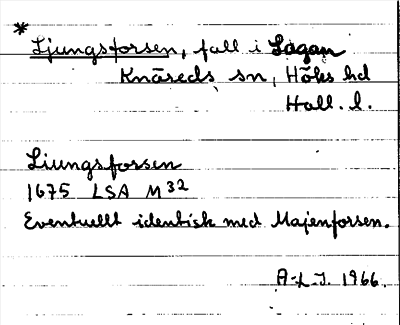 * Ljungsforsen, fall i Lagan
Knäreds sn, Höks hd
Hall. l.
Liungsforssen
1675 LSA M32
Eventuellt identisk med Majenforsen.
A-L.J. 1966.